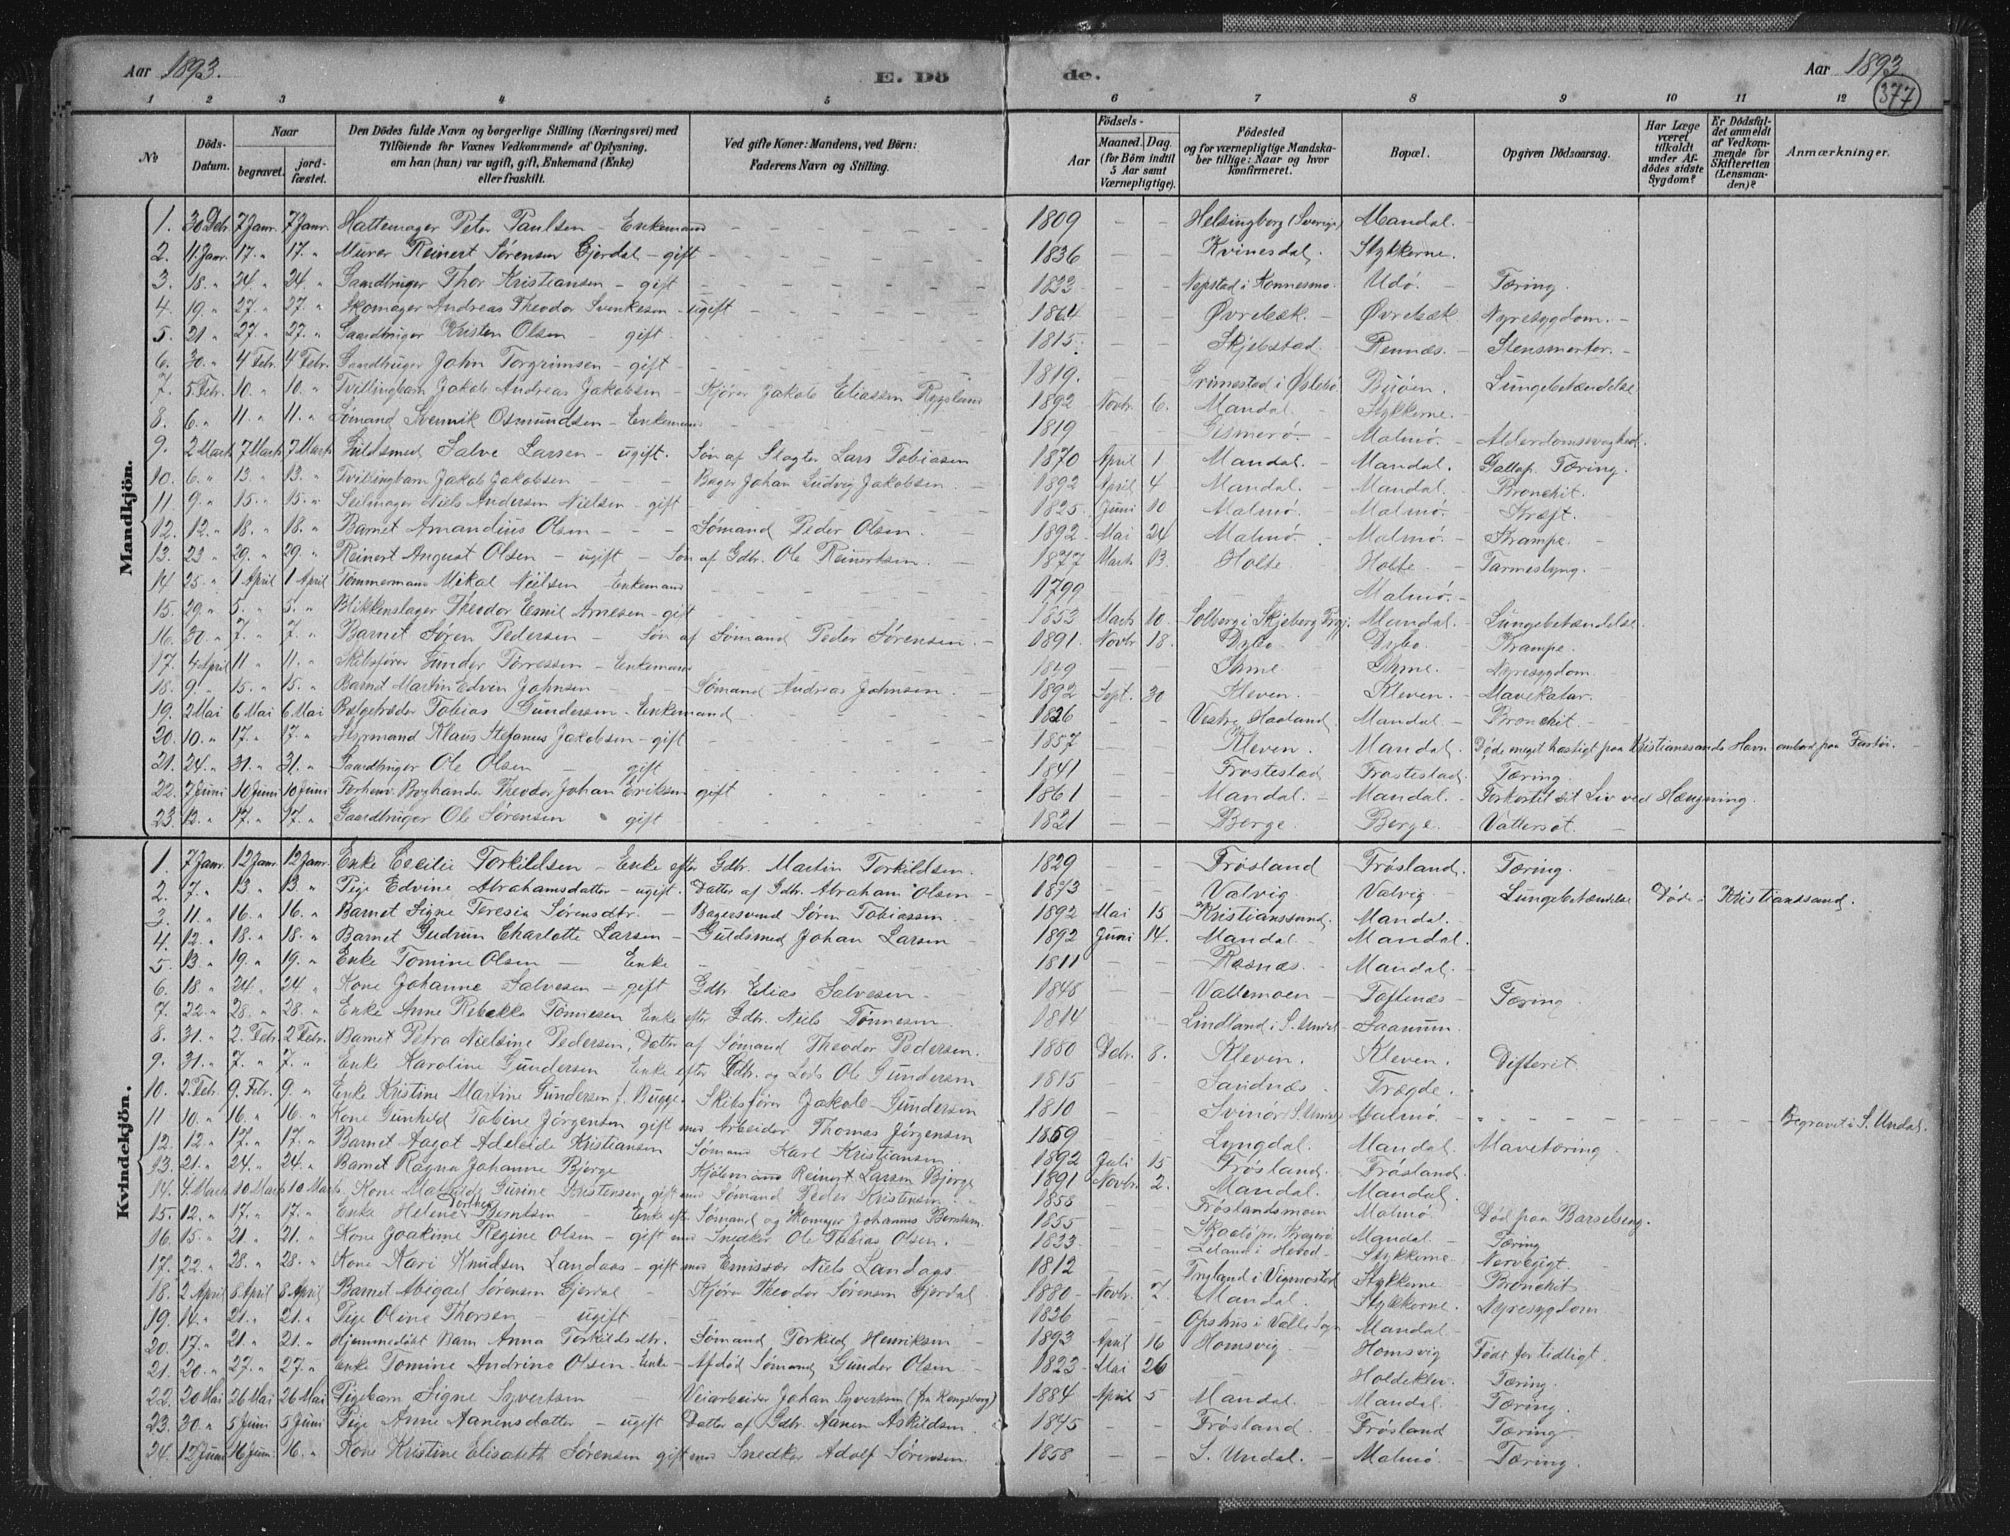 Aar 1893. E. Dö
1 2 3 4 5
No Döds-Datum. Naar begravet. jordfæstet. Den Dödes fulde Navn og borgerlige Stilling (Næringsvei) med Tilföiende for Voxnes Vedkommende af Oplysning, om han (hun) var ugift, gift, Enkemand (Enke) eller fraskilt. Ved gifte Koner: Mandens, ved Börn: Faderens Navn og Stilling.
de. Aar 1893
377
6 7 8 9 10 11 12
Födsels- Aar Maaned. Dag. (for Börn indtil 5 Aar samt Værnepligtige). Födested og for værnepligtige Mandskaber tillige: Naar og hvor konfirmeret. Bopæl. Opgiven Dödsaarsag. Har Læge været tilkaldt under Afdödes sidste Sygdom? Er Dödsfaldet anmeldt af Vedkommende for Skifteretten (Lensmanden)? Anmærkninger.
Mandkjön.
1. 30 Dcbr. 7 Janr. 7 Janr. Hattemager Peter Paulsen – Enkemand 1809 – – Helsingborg (Sverige) Mandal. –
2. 11 Janr. 17. " 17. " Murer Reinert Sørensen Gjerdal – gift 1836 – – Kvinesdal. Stykkerne.
3. 18. " 24 " 24. " Gaardbruger Thor Kristiansen – gift 1833 – – Udö. – Tæring.
4. 19. " 27. " 27. " Skomager Andreas Theodor Svenkesen – ugift 1864 – – Øvrebæk. – Øvrebæk. Nyresygdom. –
5. 21 " 27 " 27. " Gaardbruger Kristen Olsen gift. 1815. – – Skjebstad. –
6. 30. " 4 Febr. 4 Febr. Gaardbruger John Torgrimsen – gift 1819. – – Lungebetændelse
7. 5 Febr. 10. " 10. " Tvillingbarn Jakob Andreas Jakobsen – Kjører Jakob Eliassen 1892 Novbr. 6. Mandal. – Stykkerne. –
8. 6. " 11. " 11. " Sømand Osmundsen – Enkemand 1819 – – Gismerö. – Malmö. – Alderdomssvaghed.
9. 2 Marts 7 Marts 7 Marts Guldsmed Salve Larsen – ugift. Søn af Slagter Lars Tobiasen 1870 April 1 Mandal. – Mandal. Gallop. Tæring.
10. 6. " 13. " 13. " Tvillingbarn Jakob Jakobsen – – Bager Johan Ludvig Jakobsen. – 1892 April 4 Mandal. – Mandal. Bronchit. –
11. 9. " 15. " 15. " Seilmager Niels Andersen Nielsen – gift 1825. Juni 10 Malmö. – Malmö. Kræft. –
12. 12. " 18. " 18. " Barnet Amandius Olsen – – Sømand Peder Olsen. 1892 Mai 24 Malmö. – Malmö. – Krampe. –
13. 23 " 29. " 29. " Reinert August Olsen – ugift – Søn af Gdbr. Ole Reinertsen. – 1877 Marts 13. Holte. Holte. – Tarmeslyng. –
14 25. " 1 April 1 April Tømmermand Mikal Nielsen – Enkemand 1799 – – Malmö. –
15. 29. " 5. " 5. " Blikkenslager Theodor Emil Arnesen – gift 1853 Marts 10. Solberg i Skjeberg Prgj. Mandal. – Lungebetændelse.
16. 30. " 7. " 7. " Barnet Søren Pedersen – Søn af Sømand Peder Sørensen. – 1891. Novbr. 18. Dybo. – Dybo. – Krampe.
17. 4 April 11 " 11. " Skibsfører Gunder Torressen – Enkemand 1819 – – Ihme. – Ihme. – Nyresygdom.
18. 9. " 15. " 15. " Barnet Martin Edvin Johnsen – – Sømand Andreas Johnsen. – 1892 Sept. 30 Kleven. – Kleven. – Mavekatar.
19. 2 Mai 6 Mai 6 Mai Bælgetræder Tobias Gundersen – Enkemand 1826 – – Vestre Haaland. Mandal. – Bronchit. –
20. 10. " 17. " 17. " Styrmand Klaus Stefanus Jakobsen – gift 1857. – – Kleven. Mandal. Døde meget hastigt paa Kristianssands Havn ombord paa Fartøi. –
21. 24. " 31. " 31. " Gaardbruger Ole Olsen – gift 1841 – – Frostestad Frostestad. Tæring.
22. 7 Juni 10 Juni 10 Juni Forhenv. Boghandler Theodor Johan Eriksen gift 1861 – – Mandal. – Mandal. – Forkortet sit Liv ved Hængning.
23. 12. " 17. " 17. " Gaardbruger Ole Sørensen gift 1821 – – Berge. Berge. Vattersot. –
Kvindekjön.
1. 7 Janr. 12 Janr. 12 Janr. Enke Cecilie Torkildsen – Enke efter Gdbr. Martin Torkildsen. 1829 – – Frøsland Frøsland. Tæring.
2. 7. " 13. " 13. " Pige Edvine Abrahamsdatter – ugift. Datter af Gdbr. Abraham Olsen – 1873 – – Valvig Valvig – Lungebetændelse Døde i Kristianssand.
3. 11. " 16. " 16. " Barnet Signe Teresia Sørensdtr. – Bagersvend Søren Tobiassen. – 1892 Mai 15 Kristianssand. Mandal. –
4. 12. " 18. " 18. " Barnet Gudrun Charlotte Larsen – Guldsmed Johan Larsen – 1892 Juni 14. Mandal – Mandal.
5. 13. " 19. " 19. " Enke Tomine Olsen – Enke 1811 – – Mandal. –
6. 18 " 24. " 24 " Kone Johanne Salvesen – gift Gdbr. Elias Salvesen. – 1848 – – Vallemoen – Toftenæs – Tæring
7. 22. " 28. " 28. " Enke Anne Rebekka Tønnesen Enke efter Gdbr. Niels Tønnesen. 1814 – – Lindland i S. Undal
8. 31. " 2. Febr. 2 Febr. Barnet Petra Nielsine Pedersen, Datter af Sømand Theodor Pedersen. 1880 Dcbr. 8. Kleven. Kleven. – Difterit.
9. 31. " 7. " 7. " Enke Karoline Gundersen Enke efter Gdbr. og Lods Ole Gundersen 1815 – – Sandnæs. Trægde.
10. 2 Febr. 9. Febr. 9 " Enke Kristine Martine Gundersen f. Bugge. Skibsfører Jakob Gundersen 1810 – – Svinör i S. Undal Malmö. Begravet i S. Undal.
11 10. " 16. " 16. " Kone Gunhild Tobine Jørgensen gift med Arbeider Thomas Jørgensen 1859 – – Lyngdal. Mandal. Mavetæring.
12. 12. " 17. " 17. " Barnet Aagot Adeleide Kristiansen Sømand Karl Kristiansen 1892 Juli 15 Frøsland. Frøsland.
13. 21. " 24. " 24. " Barnet Ragna Johanne Bjerge Kjøbmand Reinert Larsen Bjerge 1891 Novbr. 2. Mandal. Mandal.
14. 4 Marts 10 Marts 10 Marts Kone Mathilde Gurine Kristensen, gift med Sømand Peder Kristensen 1858 – – Frøslandsmoen Malmö. Død paa Barselseng.
15. 12. " 17. " 17. " Enke Helene Berntsen – Enke efter Sømand og Skomager Johannes Berntsen. 1855 – – Mandal. – Tæring
16. 15. " 21 " 21. " Kone Joakime Regine Olsen – gift med Snedker Ole Tobias Olsen. – 1833 – – Stykkerne. Nervegigt.
17. 22. " 28. " 28. " Kone Kari Knudsen Landaas – gift med Emissær Niels Landaas 1812 – – Stykkerne – Bronchit –
18. 2 April 8 April 8 April Barnet Abigael Sørensen Gjerdal – Kjører Theodor Sørensen Gjerdal. 1880 Novbr. 7. Mandal. Stykkerne. Nyresygdom
19. 14. " 21. " 21. " Pige Oline Thorsen – ugift 1836 – – Mandal –
20. 17. " 21 " 21. " Hjemmedøbt Barn Anna Torkildsdtr. Sømand Torkild Henriksen 1893 April 16 Homsvig. – Homsvig Født for tidligt.
21. 20. " 27. " 27. " Enke Tomine Andrine Olsen. Enke – Afdød Sømand Gunder Olsen. – 1823 Mai 26 Holdeklev. Tæring.
22. 20 Mai 26 Mai 26 Mai Pigebarn Signe Syvertsen Veiarbeider Johan Syvertsen (fra Kongsberg) 1884 April 5 Mandal. Mandal. Tæring.
23. 30 " 5 Juni 5 Juni Pige Anne Aanensdatter – ugift Datter af Gdbr. Aanen Askildsen. 1845 – – Frøsland. Frøsland Tæring.
24. 12 Juni 16 Juni 16. " Kone Kristine Elisabeth Sørensen gift med Snedker Adolf Sørensen. 1858 – – S. Undal. Malmö. – Tæring.